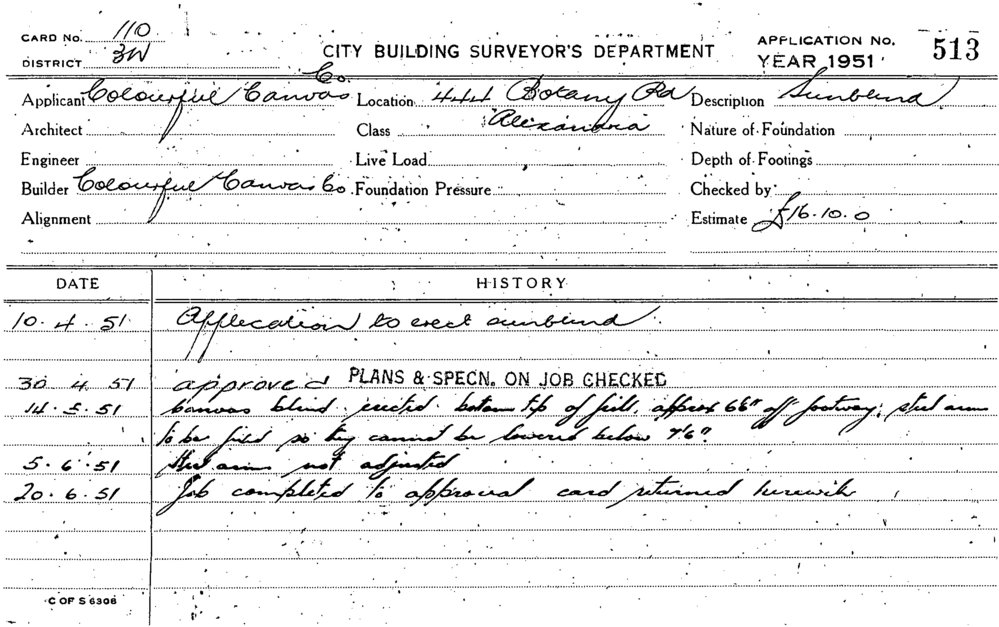 CARD No. 110
DISTRICT 3W
CITY BUILDING SURVEYOR'S DEPARTMENT
APPLICATION No. 513
YEAR 1951
Applicant Colourful Canvas Co. Location 444 Botany Rd Description Sunblind
Architect Class Alexandria Nature of Foundation
Engineer Live Load Depth of Footings
Builder Colourful Canvas Co. Foundation Pressure Checked by
Alignment Estimate £16.10.0
DATE HISTORY
10.4.51 Application to erect sunblind.
30.4.51 approved PLANS & SPECN. ON JOB CHECKED
14.5.51 Canvas blind erected bottom of frill, approx 6'6" off footway; steel arms
to be fixed so they cannot be lowered below 7'6"
5.6.51 Steel arms not adjusted
20.6.51 Job completed to approval card returned herewith
C OF S 6306